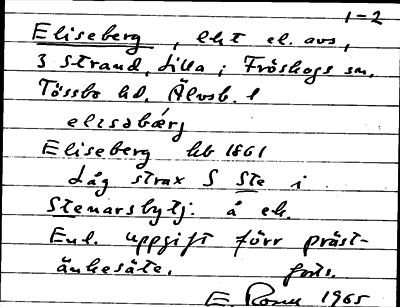 1-2
Eliseberg, lht el. avs,
3 Strand, Lilla i Fröskogs sn.
Tössbo hd. Älvsb. l
elisabærj
Eliseberg hb 1861
Låg strax S Ste i
Stenarsbytj. å ek.
Enl. uppgift förr präst-
änkesäte. forts.
E. 1965